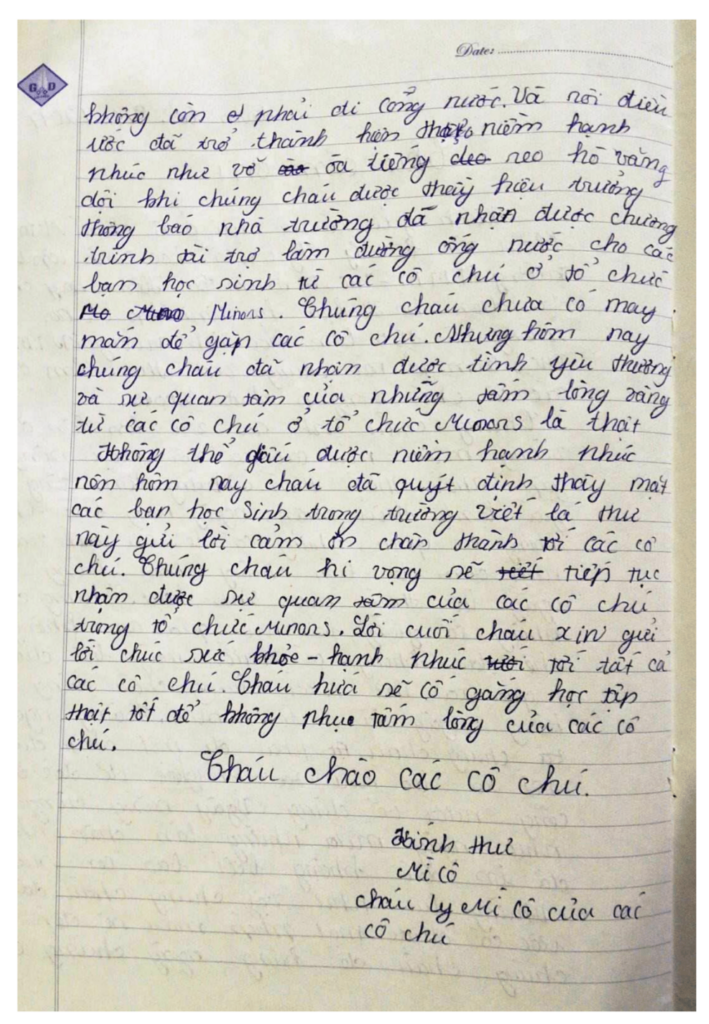 Date:
G D
không còn phải đi cổng nước. Và rồi điều
ước đã trở thành hiện niềm hanh
phúc như vỡ òa tiếng reo hò vang
dội khi chúng cháu được thầy hiệu trưởng
thông báo nhà trường đã nhận được chương
trình tài trợ làm đường ống nước cho các
bạn học sinh từ các cô chú ở tổ chức
Minors. Chúng cháu chưa có may
mắn để gặp các cô chú. Nhưng hôm nay
chúng cháu đã nhận được tình yêu thương
và sự quan tâm của những tấm lòng vàng
từ các cô chú ở tổ chức Minors là thật
Không thể giấu được niềm hạnh phúc
nên hôm nay cháu đã quyết định thay mặt
các bạn học Sinh trong trường viết lá thư
này gửi lời cảm ơn chân thành tới các cô
chú. Chúng cháu hi vọng sẽ tiếp tục
nhận được sự quan tâm của các cô chú
trong tổ chức Minors. Lời cuối cháu xin gửi
lời chúc sức khỏe - hạnh phúc tới tất cả
các cô chú. Cháu hứa sẽ cố gắng học tập
thật tốt để không phụ tấm lòng của các cô
chú.
Cháu chào các cô chú.
Kính thư
Mi Cô
cháu Ly Mi Cô của các
cô chú